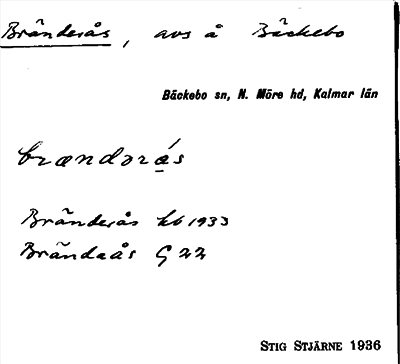 Bränderås, avs å Bäckebo
Bäckebo sn, N. Möre hd, Kalmar län
brændərás
Bränderås kb 1933
Brändaås G 22
STIG STJÄRNE 1936